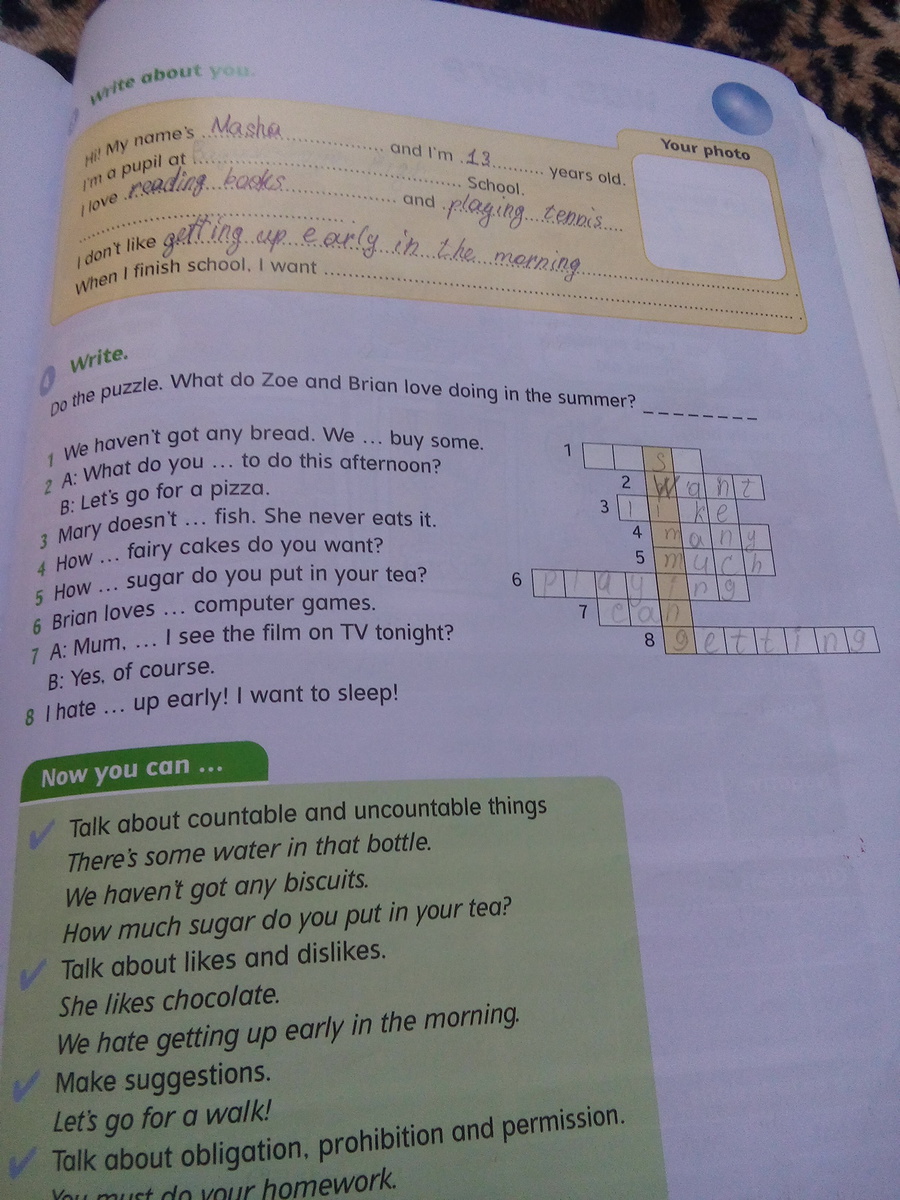 Write about you.
Hi! My name's Masha and I'm 13 years old.
I'm a pupil at School.
I love reading books and playing tennis
I don't like getting up early in the morning
When I finish school, I want
Your photo
Write.
Do the puzzle. What do Zoe and Brian love doing in the summer? _ _ _ _ _ _ _ _
1 We haven't got any bread. We ... buy some.
2 A: What do you ... to do this afternoon?
B: Let's go for a pizza.
3 Mary doesn't ... fish. She never eats it.
4 How ... fairy cakes do you want?
5 How ... sugar do you put in your tea?
6 Brian loves ... computer games.
7 A: Mum, ... I see the film on TV tonight?
B: Yes, of course.
8 I hate ... up early! I want to sleep!
1 s
2 want
3 like
4 many
5 much
6 playing
7 can
8 getting
Now you can ...
Talk about countable and uncountable things
There's some water in that bottle.
We haven't got any biscuits.
How much sugar do you put in your tea?
Talk about likes and dislikes.
She likes chocolate.
We hate getting up early in the morning.
Make suggestions.
Let's go for a walk!
Talk about obligation, prohibition and permission.
You must do your homework.